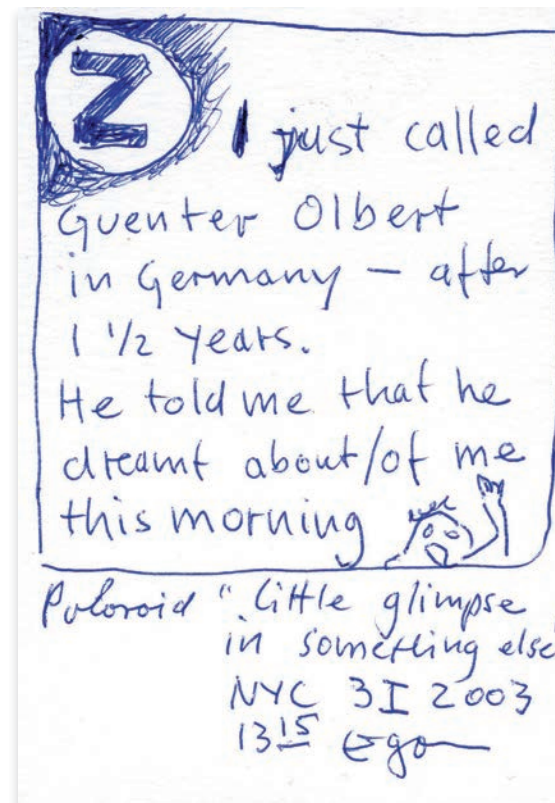 Z
I just called
Guenter Olbert
in Germany – after
1 1/2 years.
He told me that he
dreamt about/of me
this morning
Poloroid "Little glimpse
in something else
NYC 3 I 2003
13 15 Egon